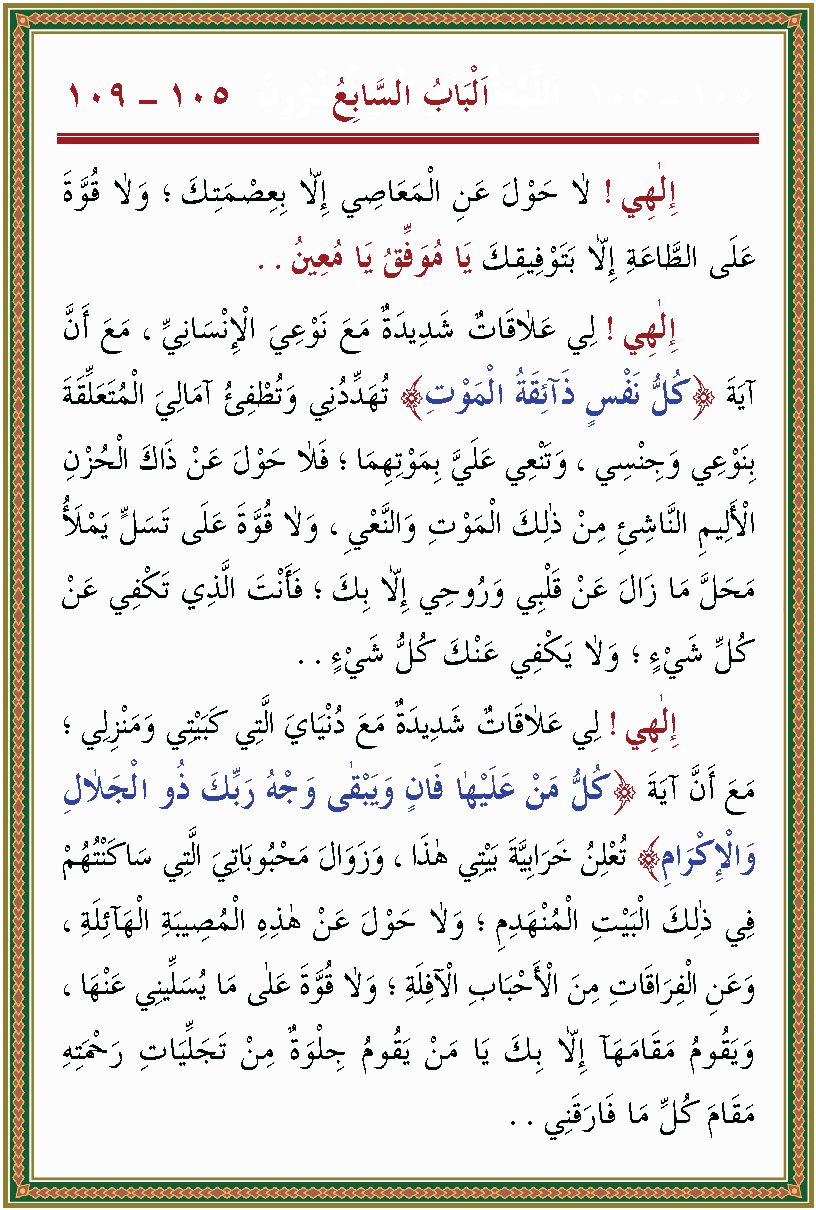 اَلْبَابُ السَّابِعُ ١٠٥ – ١٠٩
إِلٰهِي ! لاٰ حَوْلَ عَنِ الْمَعَاصِي إِلاّٰ بِعِصْمَتِكَ ؛ وَلاٰ قُوَّةَ
عَلَى الطَّاعَةِ إِلاّٰ بَتَوْفِيقِكَ يَا مُوَفِّقُ يَا مُعِينُ . .
إِلٰهِي ! لِي عَلاٰقَاتٌ شَدِيدَةٌ مَعَ نَوْعِيَ الْإِنْسَانِيِّ ، مَعَ أَنَّ
آيَةَ ﴿كُلُّ نَفْسٍ ذَآئِقَةُ الْمَوْتِ﴾ تُهَدِّدُنِي وَتُطْفِئُ آمَالِيَ الْمُتَعَلِّقَةَ
بِنَوْعِي وَجِنْسِي ، وَتَنْعِي عَلَيَّ بِمَوْتِهِمَا ؛ فَلاٰ حَوْلَ عَنْ ذَاكَ الْحُزْنِ
الْأَلِيمِ النَّاشِئِ مِنْ ذٰلِكَ الْمَوْتِ وَالنَّعْيِ ، وَلاٰ قُوَّةَ عَلَى تَسَلٍّ يَمْلَأُ
مَحَلَّ مَا زَالَ عَنْ قَلْبِي وَرُوحِي إِلاّٰ بِكَ ؛ فَأَنْتَ الَّذِي تَكْفِي عَنْ
كُلِّ شَيْءٍ ؛ وَلاٰ يَكْفِي عَنْكَ كُلُّ شَيْءٍ . .
إِلٰهِي ! لِي عَلاٰقَاتٌ شَدِيدَةٌ مَعَ دُنْيَايَ الَّتِي كَبَيْتِي وَمَنْزِلِي ؛
مَعَ أَنَّ آيَةَ ﴿كُلُّ مَنْ عَلَيْهَا فَانٍ وَيَبْقٰى وَجْهُ رَبِّكَ ذُو الْجَلاٰلِ
وَالْإِكْرَامِ﴾ تُعْلِنُ خَرَابِيَّةَ بَيْتِي هٰذَا ، وَزَوَالَ مَحْبُوبَاتِيَ الَّتِي سَاكَنْتُهُمْ
فِي ذٰلِكَ الْبَيْتِ الْمُنْهَدِمِ ؛ وَلاٰ حَوْلَ عَنْ هٰذِهِ الْمُصِيبَةِ الْهَآئِلَةِ ،
وَعَنِ الْفِرَاقَاتِ مِنَ الْأَحْبَابِ الْآفِلَةِ ؛ وَلاٰ قُوَّةَ عَلٰى مَا يُسَلِّينِي عَنْهَا ،
وَيَقُومُ مَقَامَهَآ إِلاّٰ بِكَ يَا مَنْ يَقُومُ جِلْوَةٌ مِنْ تَجَلِّيَاتِ رَحْمَتِهِ
مَقَامَ كُلِّ مَا فَارَقَنِي . .